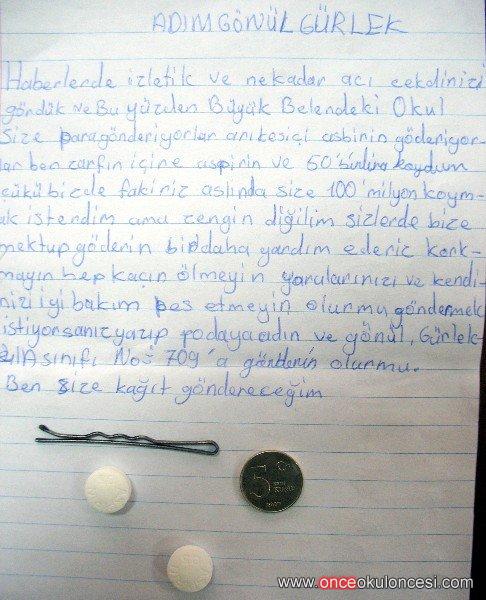 ADIM GÖNÜL GÜRLEK
Haberlerde izletik ve nekadar acı cekdinizi
gördük ve Bu yüzden Büyük Belendeki Okul
Size para gönderiyorlar
lar ben zarfın içine aspirin ve 50'binlira koydum
çükü bizde fakiriz aslında size 100'milyon koym-
ak isterdim ama zengin diğilim sizlerde bize
mektup göderin bir daha yardım ederiz kork-
mayın hep kaçın ölmeyin yaralarınızı ve kendi-
nizi iyi bakım pes etmeyin olurmu göndermek
istiyorsanız yazıp ve gönül, Gürlek-
sınıfı No: 709'a gönderin olurmu.
Ben size kağıt göndereceğim
5
www.onceokuloncesi.com